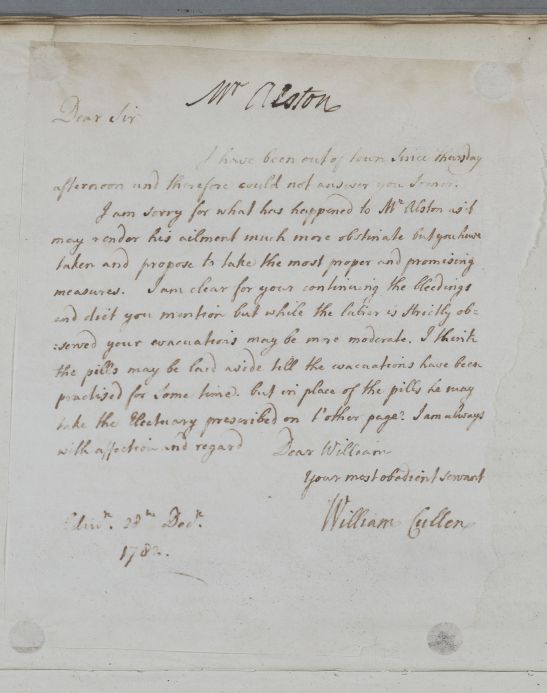 Mr Alston
Dear Sir
I have been out of town since thursday
afternoon and therefore could not answer you sooner.
I am sorry for what has happened to Mr Alston as it
may render his ailment much more obstinate but you have
taken and propose to take the most proper and promising
measures. I am clear for your continuing the bleedings
and diet you mention but while the latter is strictly ob=
=served your evacuations may be more moderate. I think
the pills may be laid aside till the evacuations have been
practised for some time. but in place of the pills he may
take the Electuary prescribed on t'other page. I am always
with affection and regard Dear William
Your most obedient servant
William Cullen
Edinr. 28th Decr.
1782.